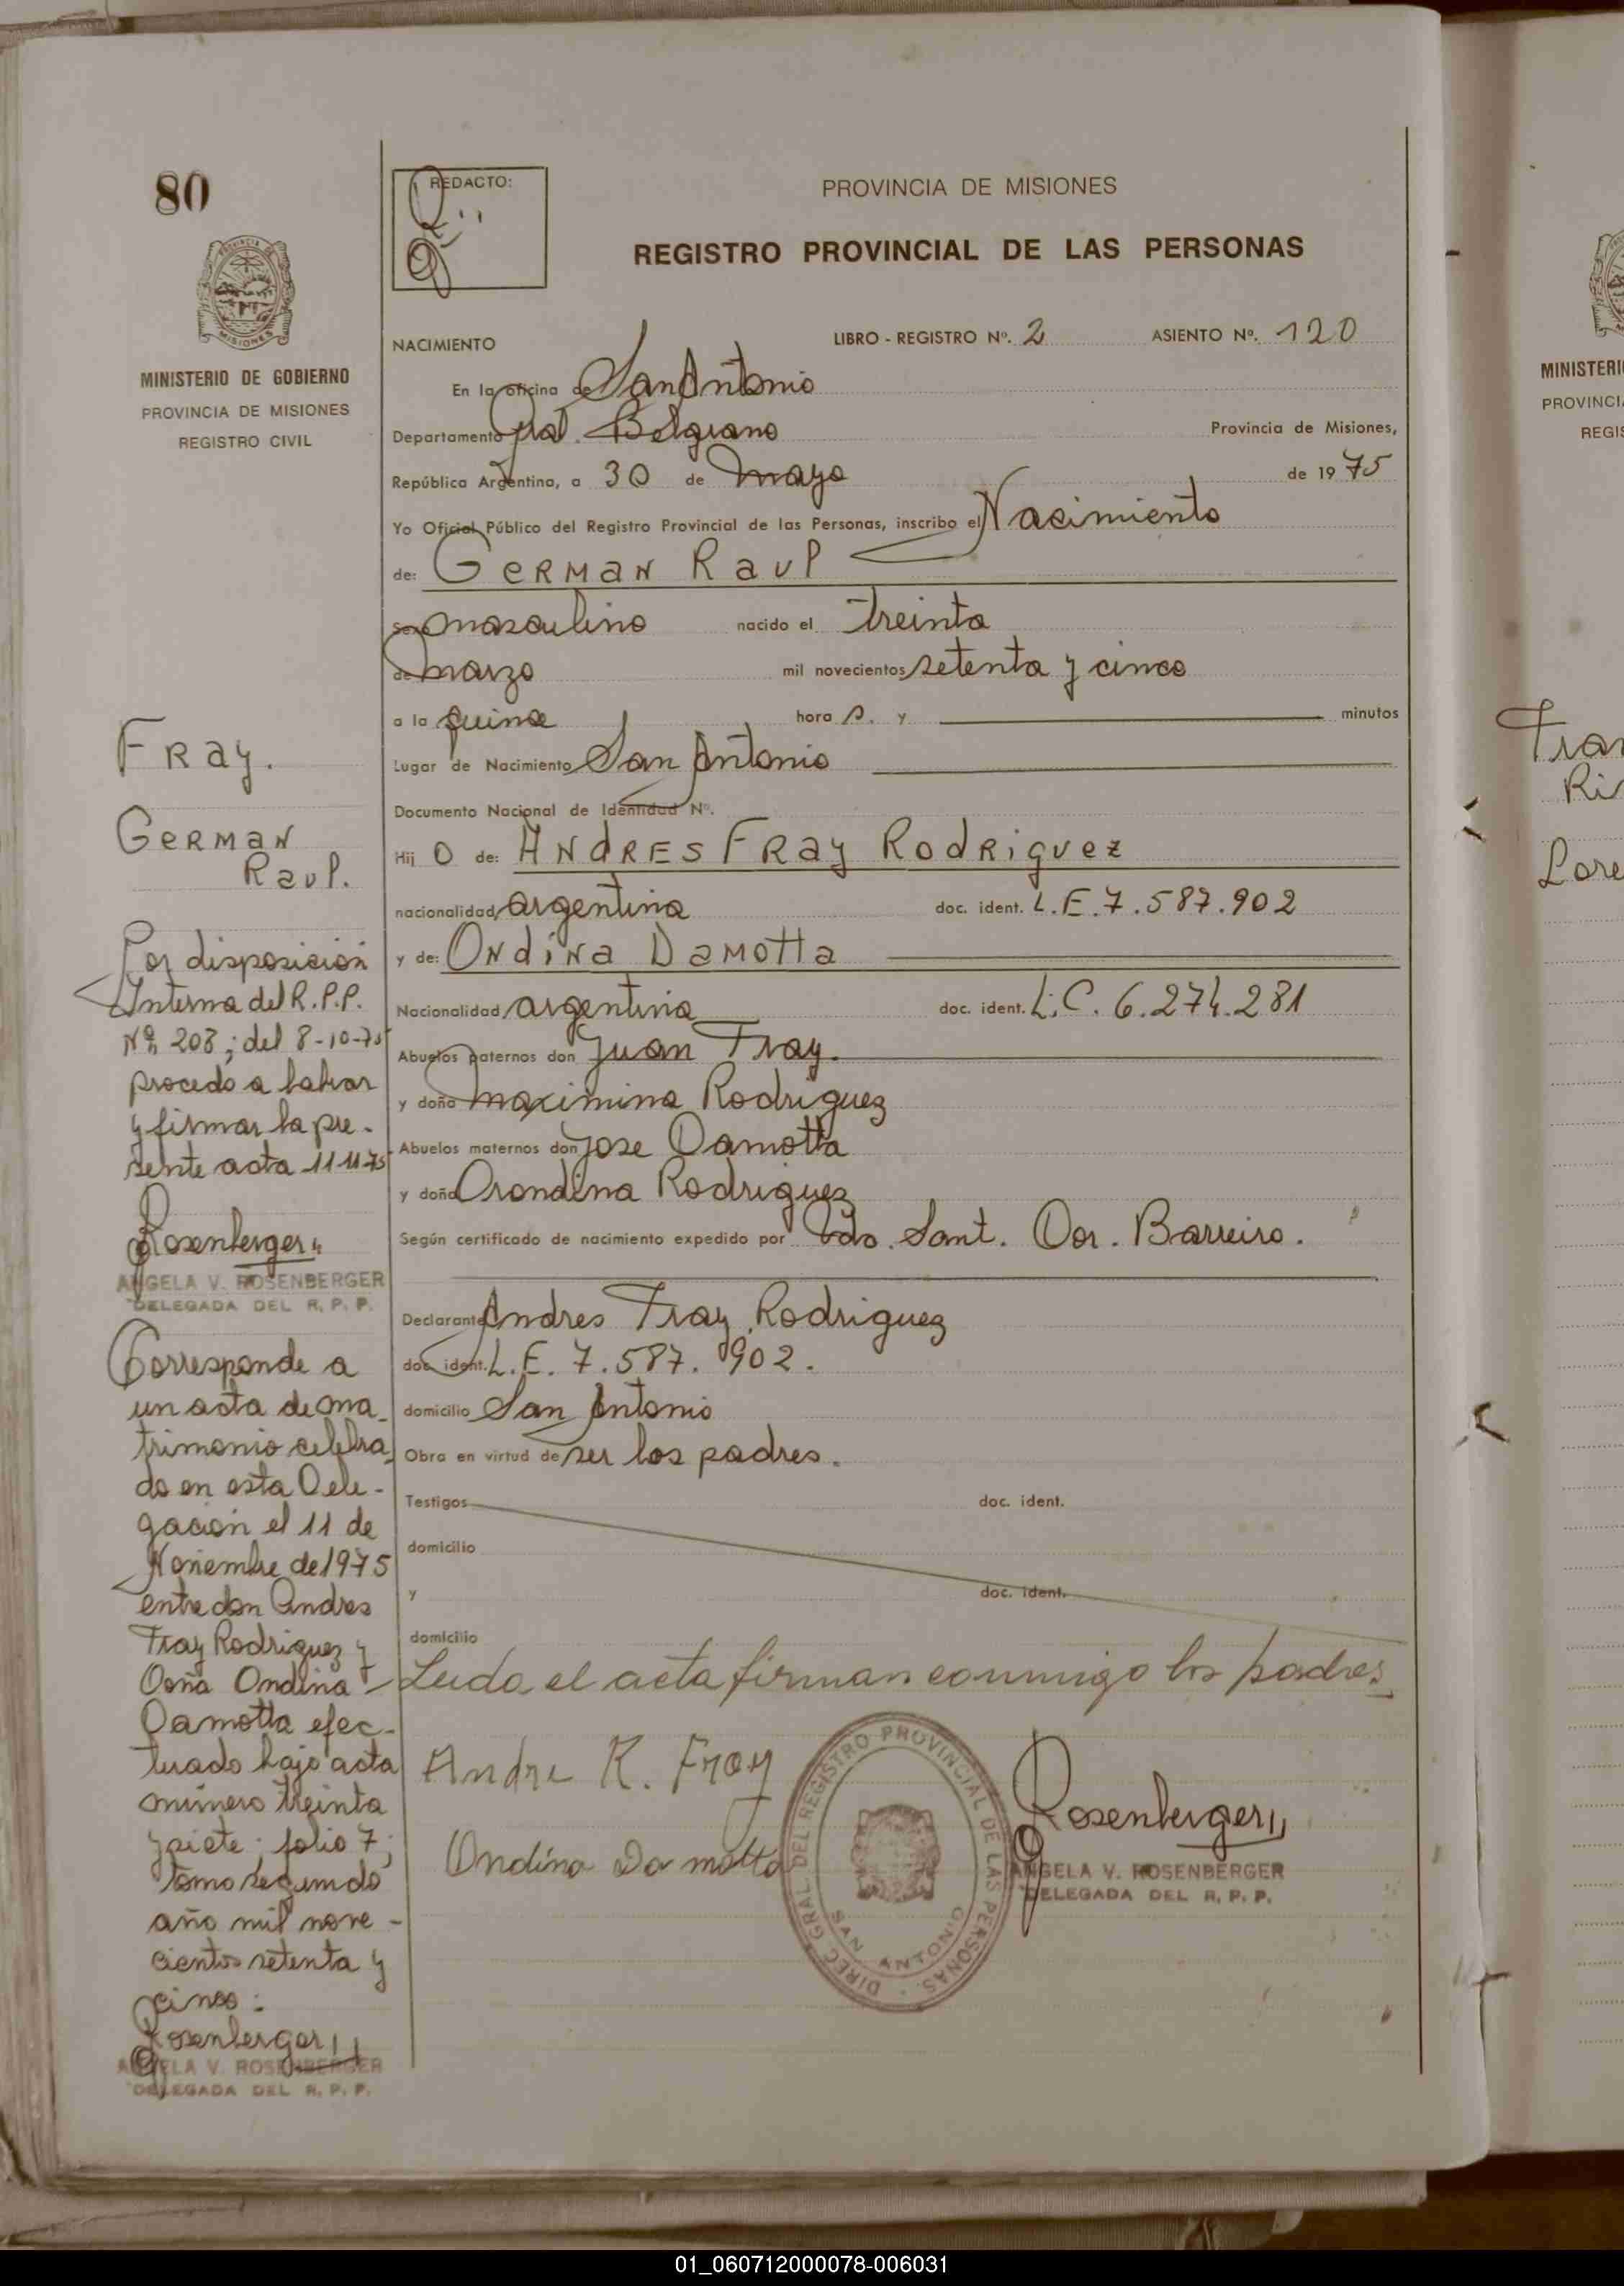 80
PROVINCIA DE MISIONES
MINISTERIO DE GOBIERNO
PROVINCIA DE MISIONES
REGISTRO CIVIL
Fray.
German
Raul.
Por disposición
Interna del R.P.P.
Nº 208; del 8-10-75
procedo a labrar
y firmar la pre-
sente acta 11-11-75
Rosenberger
ANGELA V. ROSENBERGER
DELEGADA DEL R. P. P.
Corresponde a
un acta de ma-
trimonio celebra-
do en esta Dele-
gación el 11 de
Noviembre de 1975
entre don Andres
Fray Rodriguez y
Doña Ondina
Damotta efec-
tuado bajo acta
número treinta
y siete; folio 7;
tomo segundo
año mil nove-
cientos setenta y
cinco.
Rosenberger
ANGELA V. ROSENBERGER
DELEGADA DEL R. P. P.
REDACTO:
PROVINCIA DE MISIONES
REGISTRO PROVINCIAL DE LAS PERSONAS
NACIMIENTO LIBRO - REGISTRO Nº. 2 ASIENTO Nº. 120
En la oficina de San Antonio
Departamento Gral. Belgrano Provincia de Misiones,
República Argentina, a 30 de mayo de 1975
Yo Oficial Público del Registro Provincial de las Personas, inscribo el Nacimiento
de: German Raul
Sexo masculino nacido el treinta
de marzo mil novecientos setenta y cinco
a la quince hora s. y minutos
Lugar de Nacimiento San Antonio
Documento Nacional de Identidad Nº.
Hij o de: Andres Fray Rodriguez
nacionalidad argentina doc. ident. L.E. 7.587.902
y de: Ondina Damotta
Nacionalidad argentina doc. ident. L.C. 6.274.281
Abuelos paternos don Juan Fray.
y doña maximina Rodriguez
Abuelos maternos don Jose Damotta
y doña Orondina Rodriguez
Según certificado de nacimiento expedido por Ido. Sant. Dor. Barreiro.
Declarante Andres Fray Rodriguez
doc. ident. L.E. 7.587.902.
domicilio San Antonio
Obra en virtud de ser los padres.
Testigos doc. ident.
domicilio
y doc. ident.
domicilio
Leida el acta firman conmigo los padres
Andre R. Fray
Ondina Da motta
DIREC. GRAL. DEL REGISTRO PROVINCIAL DE LAS PERSONAS
SAN ANTONIO
Rosenberger
ANGELA V. ROSENBERGER
DELEGADA DEL R. P. P.
MINISTERI
PROVINCI
REGIS
Fra
Ri
Lore
01_060712000078-006031